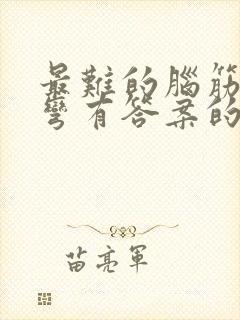 最難的腦筋
彎有答案的
苗亮軍